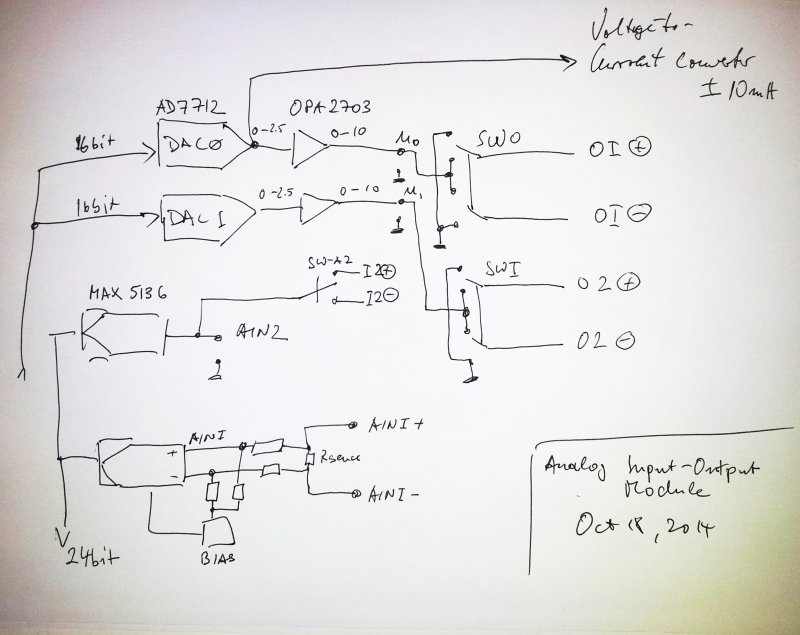 Voltage to-
Current Converter
± 10mA
AD7712
OPA2703
16bit
DAC0
0-2.5
0-10
M0
SW0
OI ⊕
OI ⊖
16bit
DAC I
0-2.5
0-10
M1
SW-A2
I2⊕
I2⊖
SWI
O2 ⊕
O2 ⊖
MAX 5136
AIN2
AINI
+
-
AINI+
Rsence
AINI-
BIAS
24bit
Analog Input-Output
Module
Oct 18, 2014